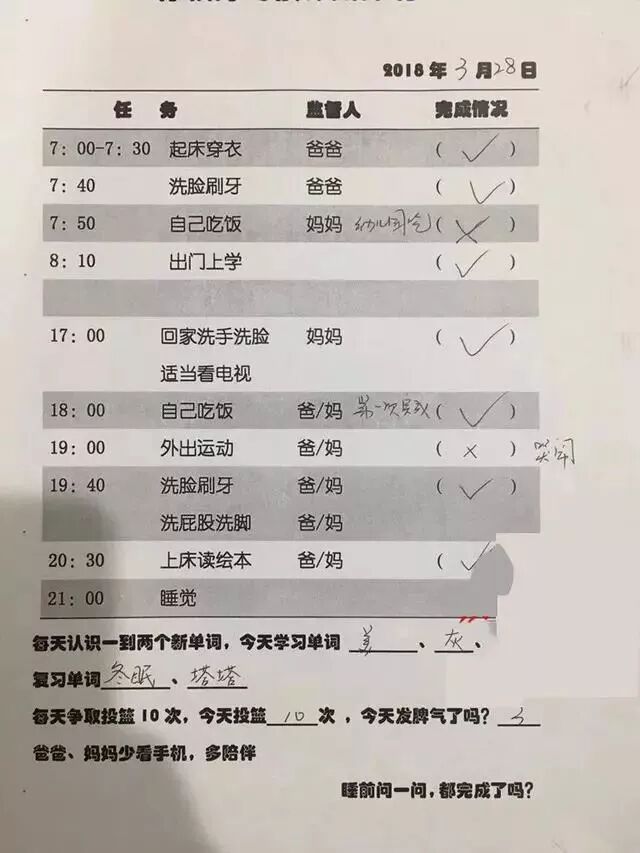 2018 年 3 月 28 日
任 务 监督人 完成情况
7：00-7：30 起床穿衣 爸爸 （ ✓ ）
7：40 洗脸刷牙 爸爸 （ ✓ ）
7：50 自己吃饭 妈妈 幼儿园吃 （ × ）
8：10 出门上学 （ ✓ ）
17：00 回家洗手洗脸 妈妈 （ ✓ ）
适当看电视
18：00 自己吃饭 爸/妈 第一次 （ ✓ ）
19：00 外出运动 爸/妈 （ × ） 哭闹
19：40 洗脸刷牙 爸/妈 （ ✓ ）
洗屁股洗脚 爸/妈
20：30 上床读绘本 爸/妈 （ ✓
21：00 睡觉
每天认识一到两个新单词，今天学习单词 姜 、灰、
复习单词 冬眠 、塔塔
每天争取投篮 10 次，今天投篮 10 次 ，今天发脾气了吗？ 3
爸爸、妈妈少看手机，多陪伴
睡前问一问，都完成了吗？